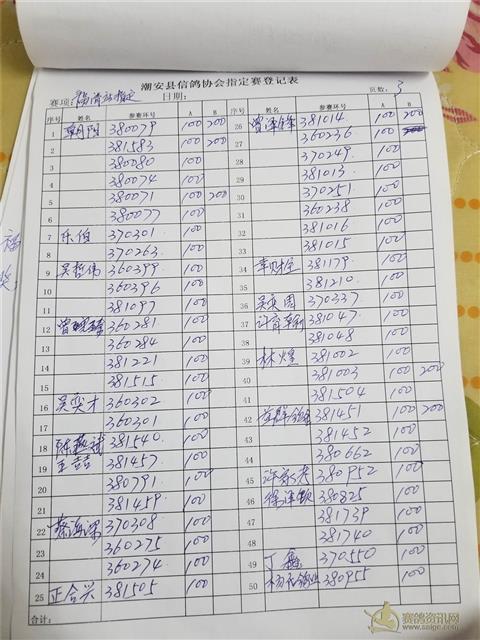 潮安县信鸽协会指定赛登记表
赛项: 福清站指定 日期: 页数: 3
序号 姓名 参赛环号 A B 序号 姓名 参赛环号 A B
1 朝阳 380079 100 200 26 曾泽锋 381014 100 200
2 381583 100 200 27 360236 100
3 380080 100 28 370249 100
4 380074 100 29 381013 100
5 380071 100 200 30 370251 100
6 380077 100 31 360238 100
7 乐伯 370301 100 32 381016 100
8 370263 100 33 381015 100
9 吴哲伟 360399 100 34 381179 100
10 360396 100 35 381210 100
11 381097 100 36 370337 100
12 360281 100 37 381047 100
13 360284 100 38 381048 100
14 381221 100 39 林煜 381002 100
15 381515 100 40 381003 100 200
16 吴奕才 360302 100 41 381504 100
17 360301 100 42 381451 100 200
18 381540 100 43 381452 100
19 王喆 381457 100 44 380662 100
20 380791 100 45 380952 100
21 381459 100 46 380825 100
22 370308 100 47 381739 100
23 360275 100 48 381740 100
24 360274 100 49 370550 100
25 正合兴 381505 100 50 380955 100
合计:
福
奖:
赛鸽资讯网
www.saige.com